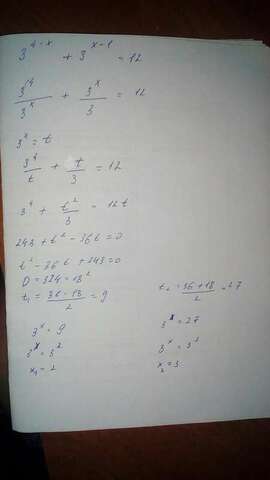 3^{4-x} + 3^{x-1} = 12
3^4/3^x + 3^x/3 = 12
3^x = t
3^4/t + t/3 = 12
3^4 + t^2/3 = 12t
243 + t^2 - 36t = 0
t^2 - 36t + 243 = 0
D = 324 = 18^2
t_1 = (36 - 18)/2 = 9
t_2 = (36 + 18)/2 = 27
3^x = 9
3^x = 3^2
x_1 = 2
3^x = 27
3^x = 3^3
x_2 = 3